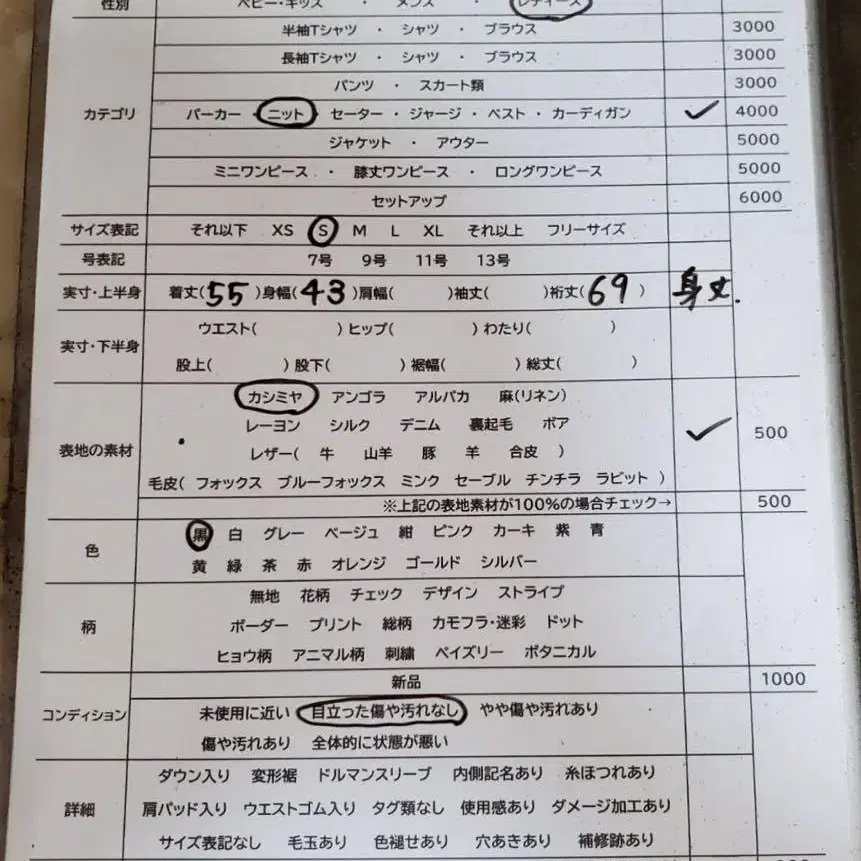 性別 ベビー・キッズ ・ メンズ ・ レディース
半袖Tシャツ ・ シャツ ・ ブラウス 3000
長袖Tシャツ ・ シャツ ・ ブラウス 3000
パンツ ・ スカート類 3000
カテゴリ パーカー ・ ニット ・ セーター ・ ジャージ ・ ベスト ・ カーディガン ✓ 4000
ジャケット ・ アウター 5000
ミニワンピース ・ 膝丈ワンピース ・ ロングワンピース 5000
セットアップ 6000
サイズ表記 それ以下 XS S M L XL それ以上 フリーサイズ
号表記 7号 9号 11号 13号
実寸・上半身 着丈(55)身幅(43)肩幅( )袖丈( )裄丈(69) 身丈.
実寸・下半身 ウエスト( )ヒップ( )わたり( )
股上( )股下( )裾幅( )総丈( )
カシミヤ アンゴラ アルパカ 麻(リネン)
レーヨン シルク デニム 裏起毛 ボア ✓ 500
表地の素材 レザー( 牛 山羊 豚 羊 合皮 )
毛皮( フォックス ブルーフォックス ミンク セーブル チンチラ ラビット )
※上記の表地素材が100%の場合チェック→ 500
色 黒 白 グレー ベージュ 紺 ピンク カーキ 紫 青
黄 緑 茶 赤 オレンジ ゴールド シルバー
無地 花柄 チェック デザイン ストライプ
柄 ボーダー プリント 総柄 カモフラ・迷彩 ドット
ヒョウ柄 アニマル柄 刺繍 ペイズリー ボタニカル
新品 1000
コンディション 未使用に近い 目立った傷や汚れなし やや傷や汚れあり
傷や汚れあり 全体的に状態が悪い
ダウン入り 変形裾 ドルマンスリーブ 内側記名あり 糸ほつれあり
詳細 肩パッド入り ウエストゴム入り タグ類なし 使用感あり ダメージ加工あり
サイズ表記なし 毛玉あり 色褪せあり 穴あきあり 補修跡あり